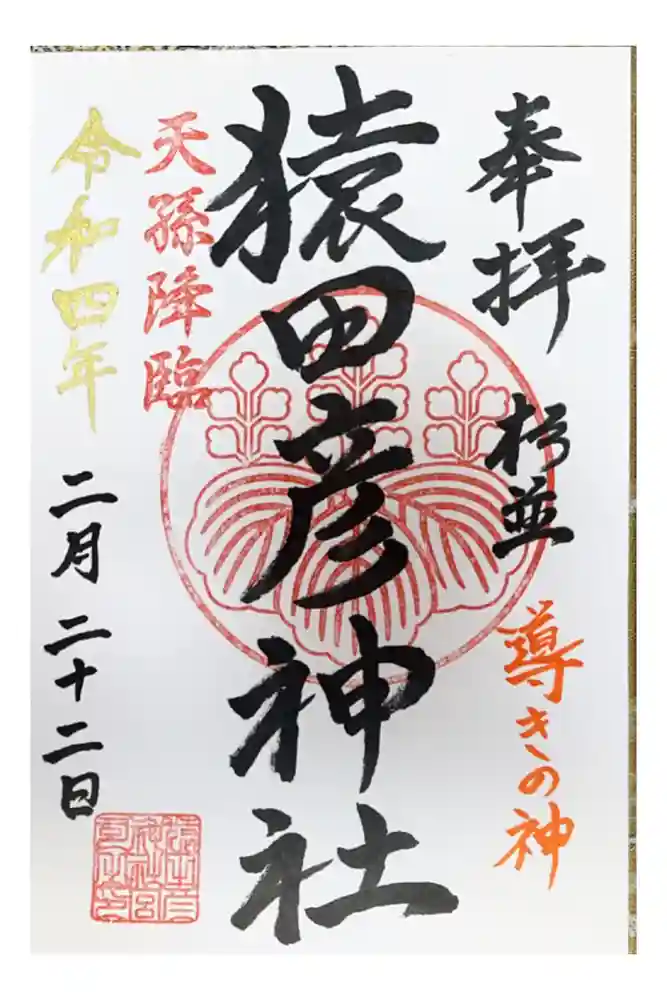 奉拝
杉並
導きの神
猿田彦神社
天孫降臨
令和四年
二月二十二日